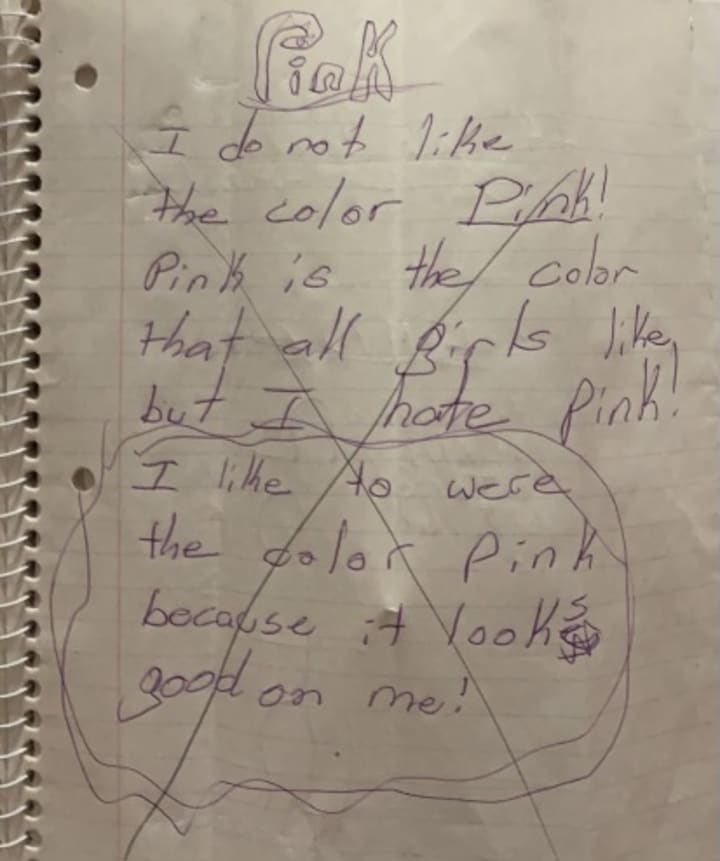 Pink
I do not like
the color Pink!
Pink is the color
that all girls like,
but I hate Pink!
I like to were
the color Pink
because it looks
good on me!